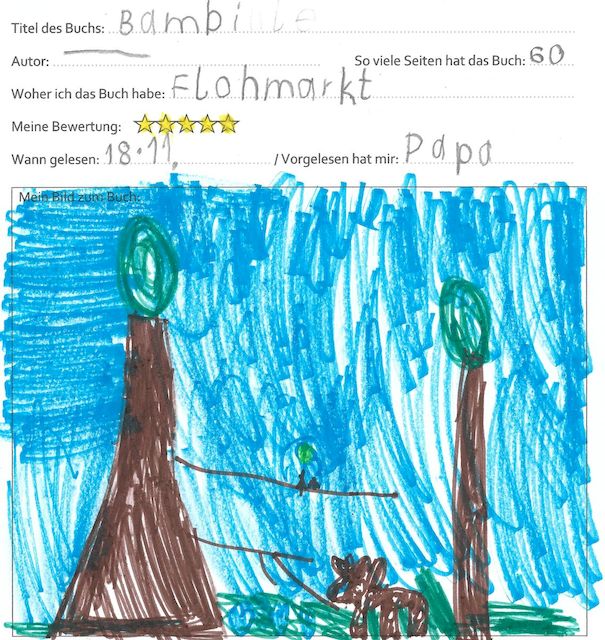 Titel des Buchs: Bambi
Autor: So viele Seiten hat das Buch: 60
Woher ich das Buch habe: Flohmarkt
Meine Bewertung:
Wann gelesen: 18.11. / Vorgelesen hat mir: Papa
Mein Bild zum Buch: